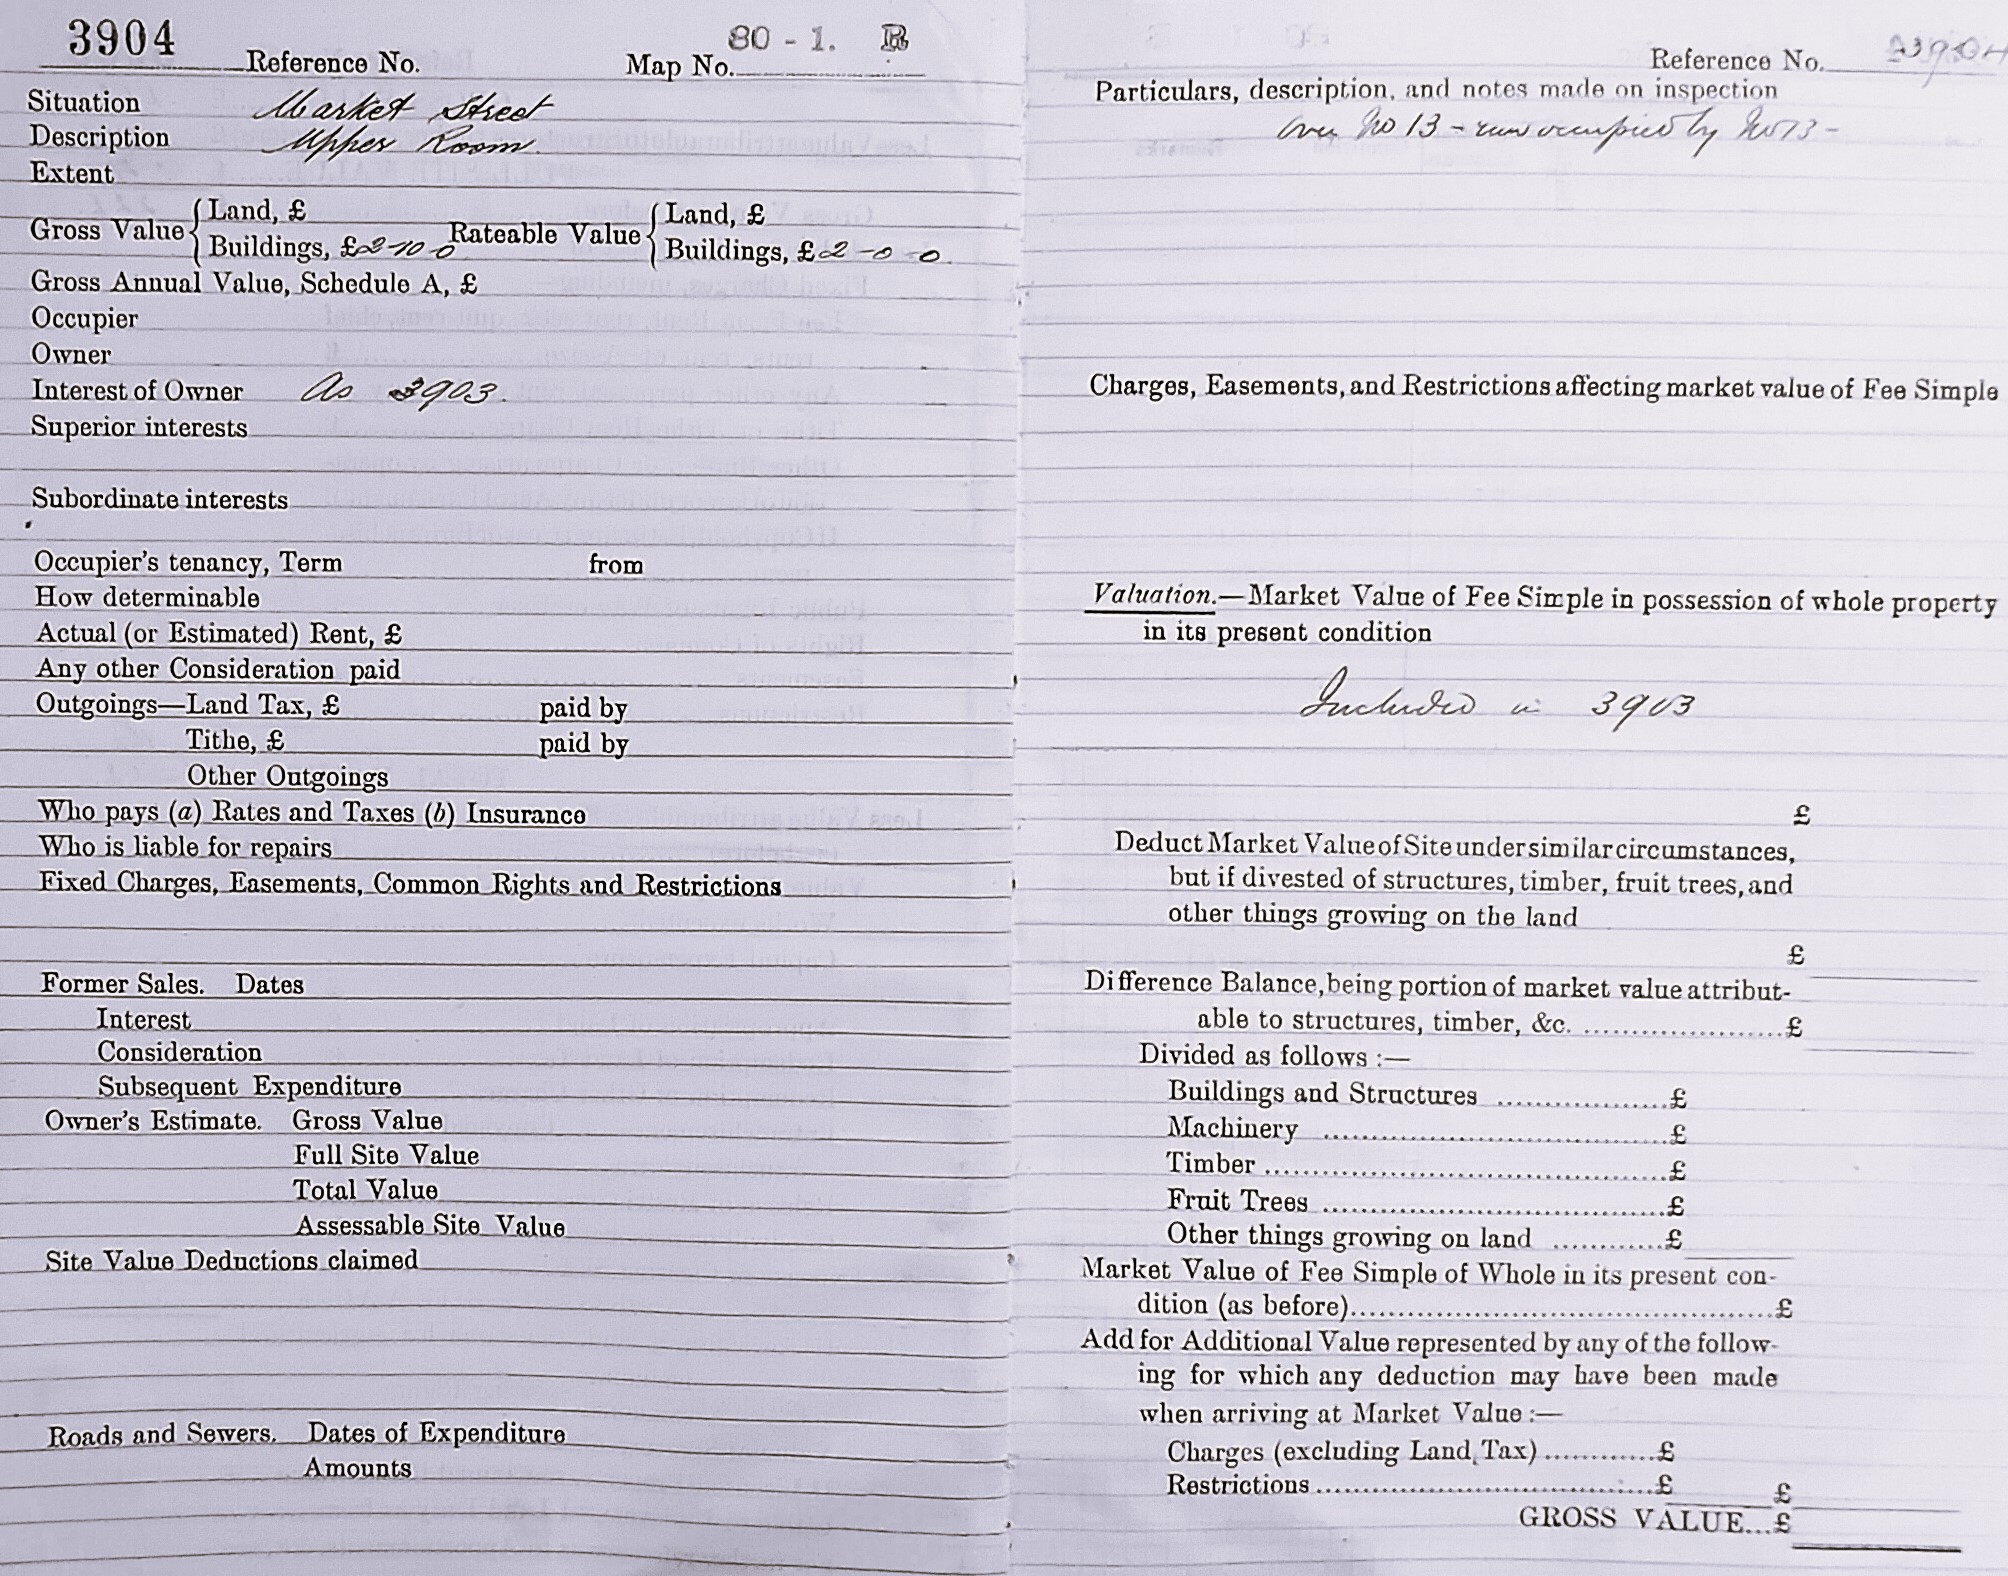 3904 Reference No. Map No. 80 - 1. R
Situation Market Street
Description Upper Room.
Extent
Gross Value { Land, £ Rateable Value { Land, £
Buildings, £2-10-0 Buildings, £2-0-0
Gross Annual Value, Schedule A, £
Occupier
Owner
Interest of Owner As 3903.
Superior interests
Subordinate interests
Occupier's tenancy, Term from
How determinable
Actual (or Estimated) Rent, £
Any other Consideration paid
Outgoings—Land Tax, £ paid by
Tithe, £ paid by
Other Outgoings
Who pays (a) Rates and Taxes (b) Insurance
Who is liable for repairs
Fixed Charges, Easements, Common Rights and Restrictions
Former Sales. Dates
Interest
Consideration
Subsequent Expenditure
Owner's Estimate. Gross Value
Full Site Value
Total Value
Assessable Site Value
Site Value Deductions claimed
Roads and Sewers. Dates of Expenditure
Amounts
Reference No. 3904
Particulars, description, and notes made on inspection
Over No 13 - occupied by No 13 -
Charges, Easements, and Restrictions affecting market value of Fee Simple
Valuation.—Market Value of Fee Simple in possession of whole property
in its present condition
Included in 3903
£
Deduct Market Value of Site under similar circumstances,
but if divested of structures, timber, fruit trees, and
other things growing on the land
£
Difference Balance, being portion of market value attribut-
able to structures, timber, &c. ....................£
Divided as follows :—
Buildings and Structures .................£
Machinery ..................................£
Timber .......................................£
Fruit Trees .................................£
Other things growing on land ............£
Market Value of Fee Simple of Whole in its present con-
dition (as before)..........................................£
Add for Additional Value represented by any of the follow-
ing for which any deduction may have been made
when arriving at Market Value :—
Charges (excluding Land Tax) ...........£
Restrictions ..................................£ £
GROSS VALUE...£